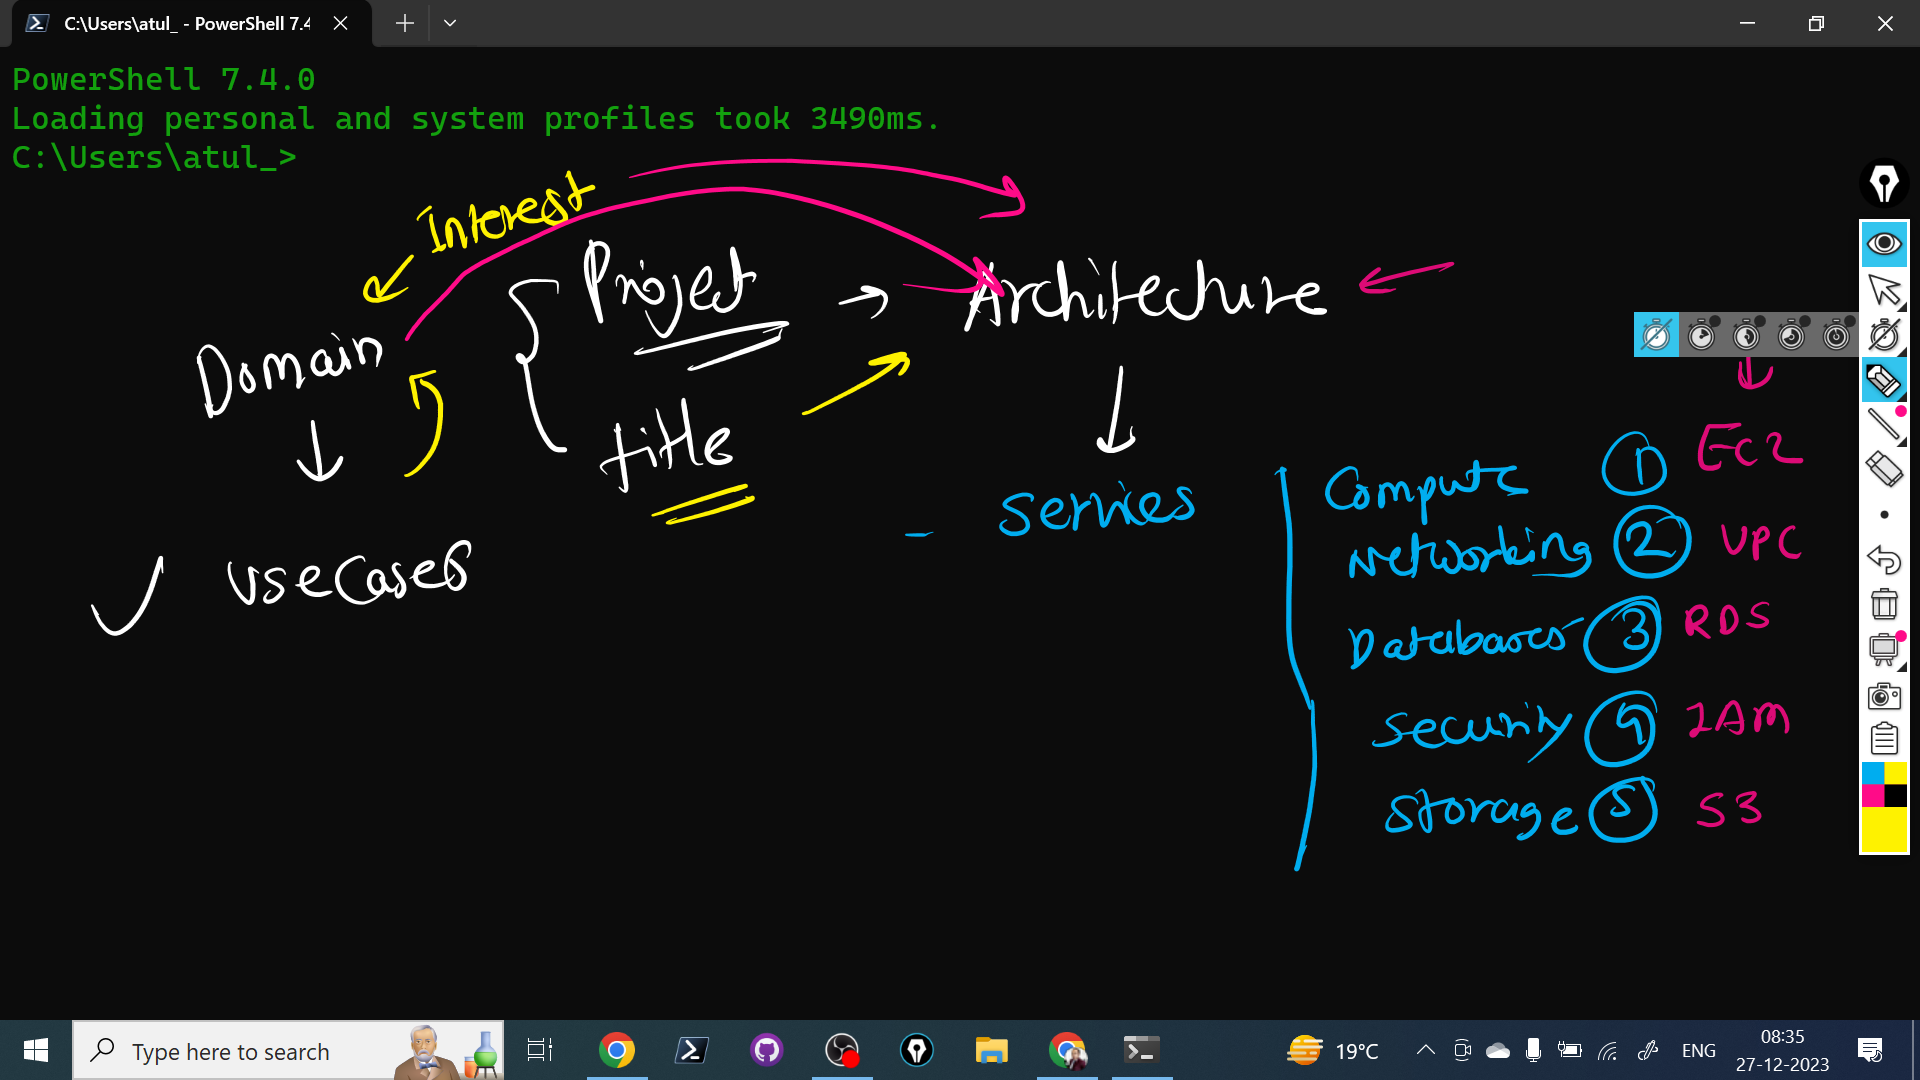 C:\Users\atul_ - PowerShell 7.4
PowerShell 7.4.0
Loading personal and system profiles took 3490ms.
C:\Users\atul_>
Interest
Project
Architecture
Domain
title
Services
usecases
Compute 1 EC2
Networking 2 VPC
Databases 3 RDS
Security 4 IAM
Storage 5 S3
Type here to search
19°C
ENG
08:35
27-12-2023